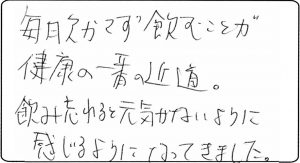 毎日欠かさず飲むことが
健康の一番の近道。
飲み忘れると元気がないように
感じるようになってきました。